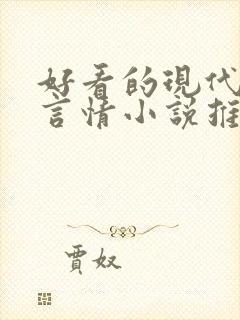 好看的現代
言情小說推
賈奴